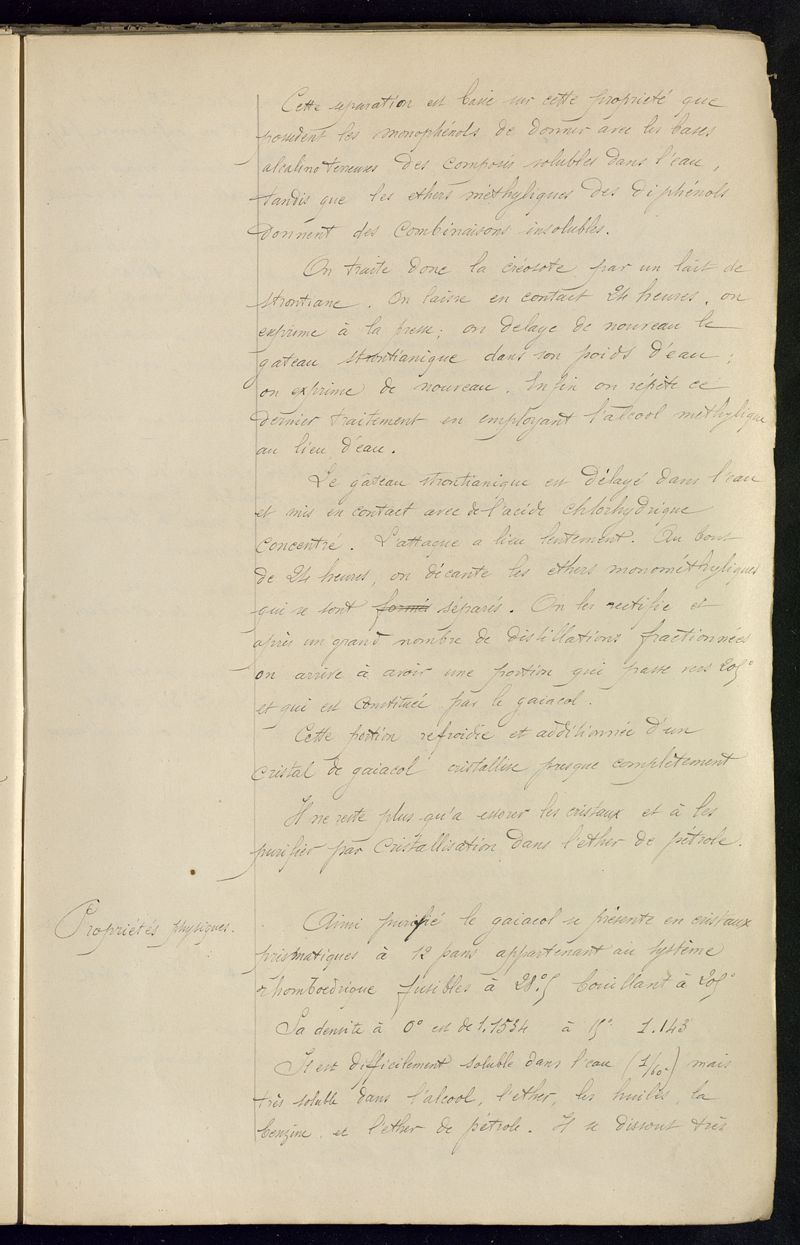 Cette separation est basée sur cette propriété que
possedent les monophénols de donner avec les bases
alcalino terreuses des composés solubles dans l'eau,
tandis que les ethers méthyliques des diphénols
donnent des combinaisons insolubles.
On traite donc la créosote par un lait de
strontiane. On laisse en contact 24 heures, on
exprime à la presse; on delaye de nouveau le
gateau strontianique dans son poids d'eau;
on exprime de nouveau. Enfin on répète ce
dernier traitement en employant l'alcool méthylique
au lieu d'eau.
Le gâteau strontianique est délayé dans l'eau
et mis en contact avec de l'acide chlorhydrique
concentré. L'attaque a lieu lentement. Au bout
de 24 heures, on décante les ethers monométhyliques
qui se sont formés séparés. On les rectifie et
après un grand nombre de distillations fractionnées
on arrive à avoir une portion qui passe vers 205°
et qui est constituée par le gaiacol.
Cette portion refroidie et additionnée d'un
cristal de gaiacol cristallise presque complètement
Il ne reste plus qu'a essorer les cristaux et à les
purifier par cristallisation dans l'ether de pétrole.
Propriétés physiques.
Ainsi purifié le gaiacol se présente en cristaux
prismatiques à 12 pans appartenant au système
rhomboedrique fusibles à 28°5 bouillant à 205°
Sa densite à 0° est de 1.1534 à 15° 1.143
Il est difficilement soluble dans l'eau (1/60) mais
très soluble dans l'alcool, l'ether, les huiles, la
benzine et l'ether de pétrole. Il se dissout très